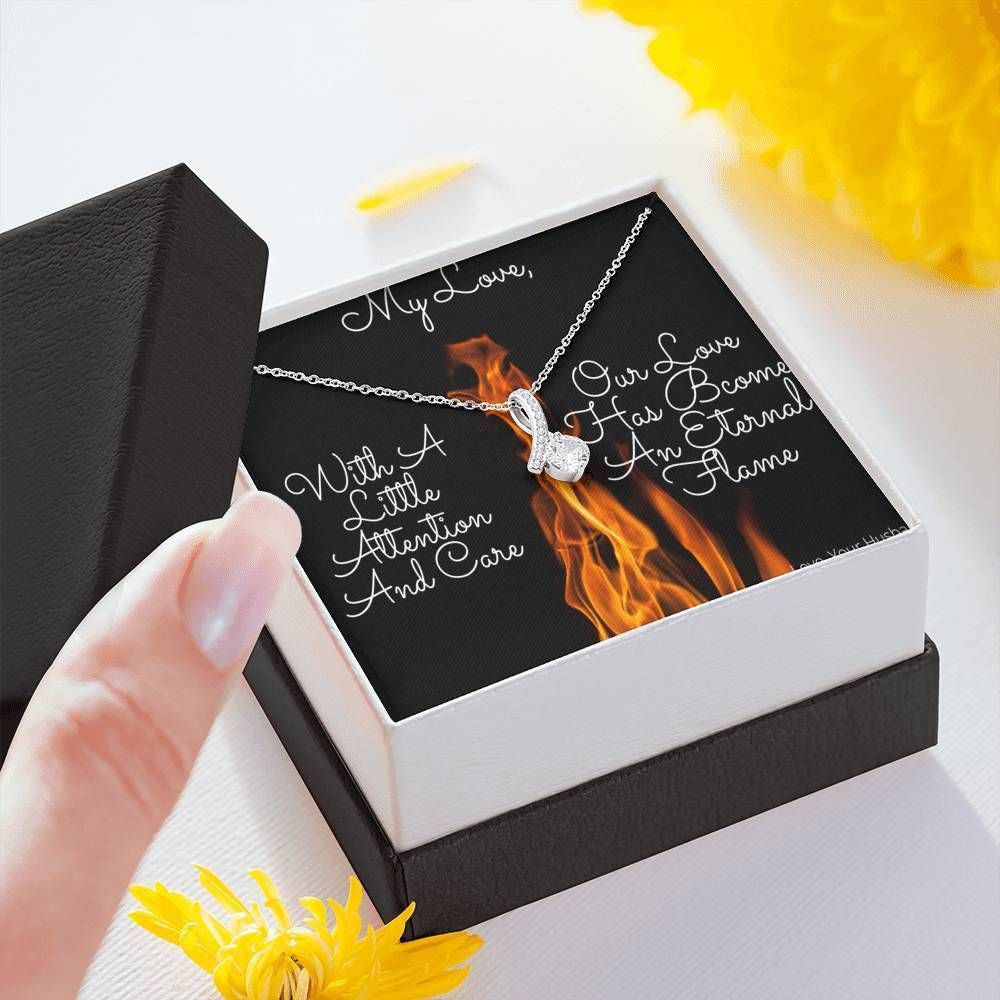 My Love,
With A
Little
Attention
And Care
Our Love
Has Bcome
An Eternal
Flame
Love Your